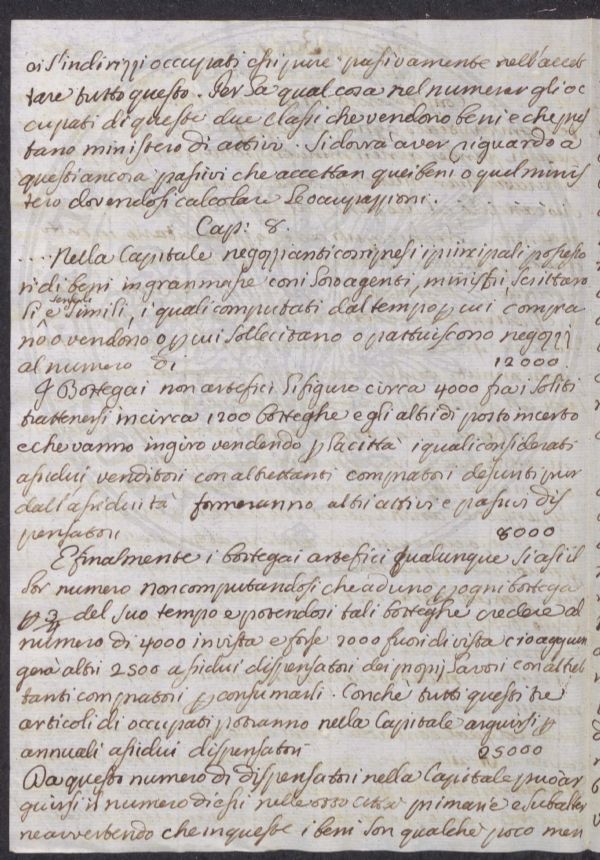 si s'indirizzi occupati essi pure passivamente nell'accet
tare tutto questo. Per la qual cosa nel numerar gli oc
cupati di queste due classi che vendono beni e che pres
tano ministero di attivi. Si dovrà aver riguardo a
questi ancora passivi che accettan quei beni o quel minis
tero dovendosi calcolare le occupazioni.
Cap: 8.
.... Nella Capitale negozianti compresi i principali possesso
ri di beni in gran masse con i loro agenti, ministri, scritturo
li e sensali simili, i quali computati dal tempo p cui compra
nô o vendono o p cui sollecitano o pattuiscono negozj
al numero di 12000
I Bottegai non artefici si figuro circa 4000 fra i soliti
trattenersi in circa 1200 botteghe e gli altri di posto incerto
e che vanno in giro vendendo p la città i quali considerati
assidui venditori con altrettanti compratori desunti pur
dall'assiduità formeranno altri attivi e passivi dis
pensatori 8000
E finalmente i bottegai artefici qualunque siasi il
lor numero non computandosi che ad uno p ogni bottega
p del suo tempo e potendosi tali botteghe credere al
numero di 4000 in vista e forse 1000 fuori di vista ciò aggiun
gerà altri 2500 assidui dispensatori dei proprj lavori con altret
tanti compratori p consumarli. Conchè tutti questi tre
articoli di occupati potranno nella Capitale arguirsi p
annuali assidui dispensatori 25000
Da questo numero di dispensatori nella Capitale può ar
guirsi il numero di essi nelle otto città primarie e subalter
ne avvertendo che in queste i beni son qualche poco men